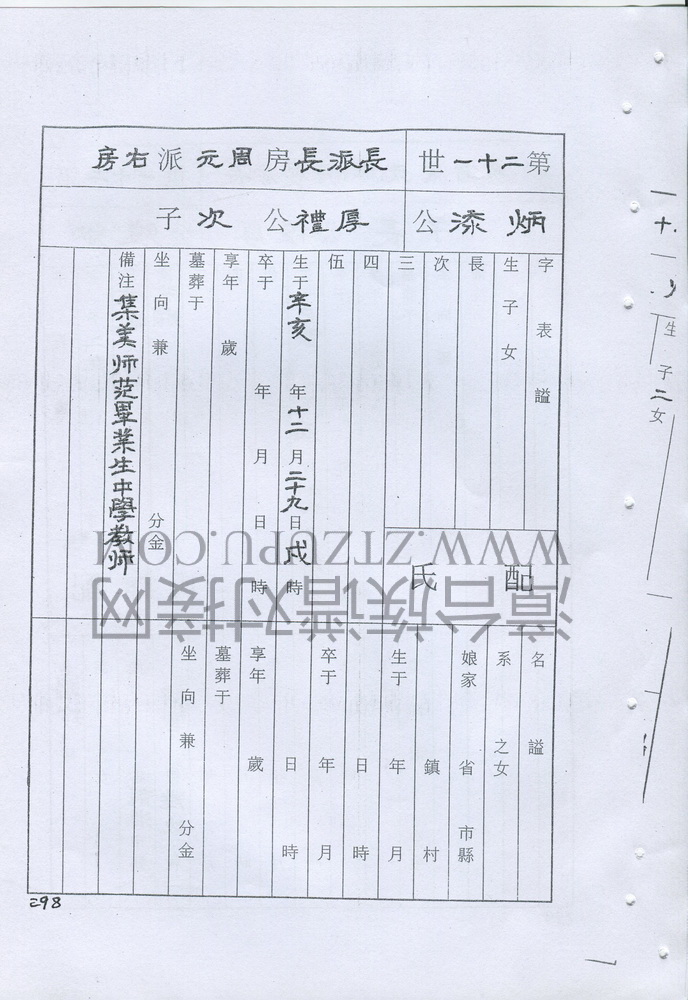 第二十一世
長派長房周元派右房
炳添公
厚禮公次子
字 表 謚
生子女
長
次
三
四
伍
生于辛亥年十二月二十九日戌時
卒于 年 月 日 時
享年 歲
墓葬于
坐向兼 分金
備注集美师范畢業生中學教师
配 氏
名 謚
系 之女
娘家 省 市縣
鎮 村
生于 年 月
日 時
卒于 年 月
日 時
享年 歲
墓葬于
坐向兼 分金
298
生子二女
漳台族谱对接网
WWW.ZTZUPU.COM